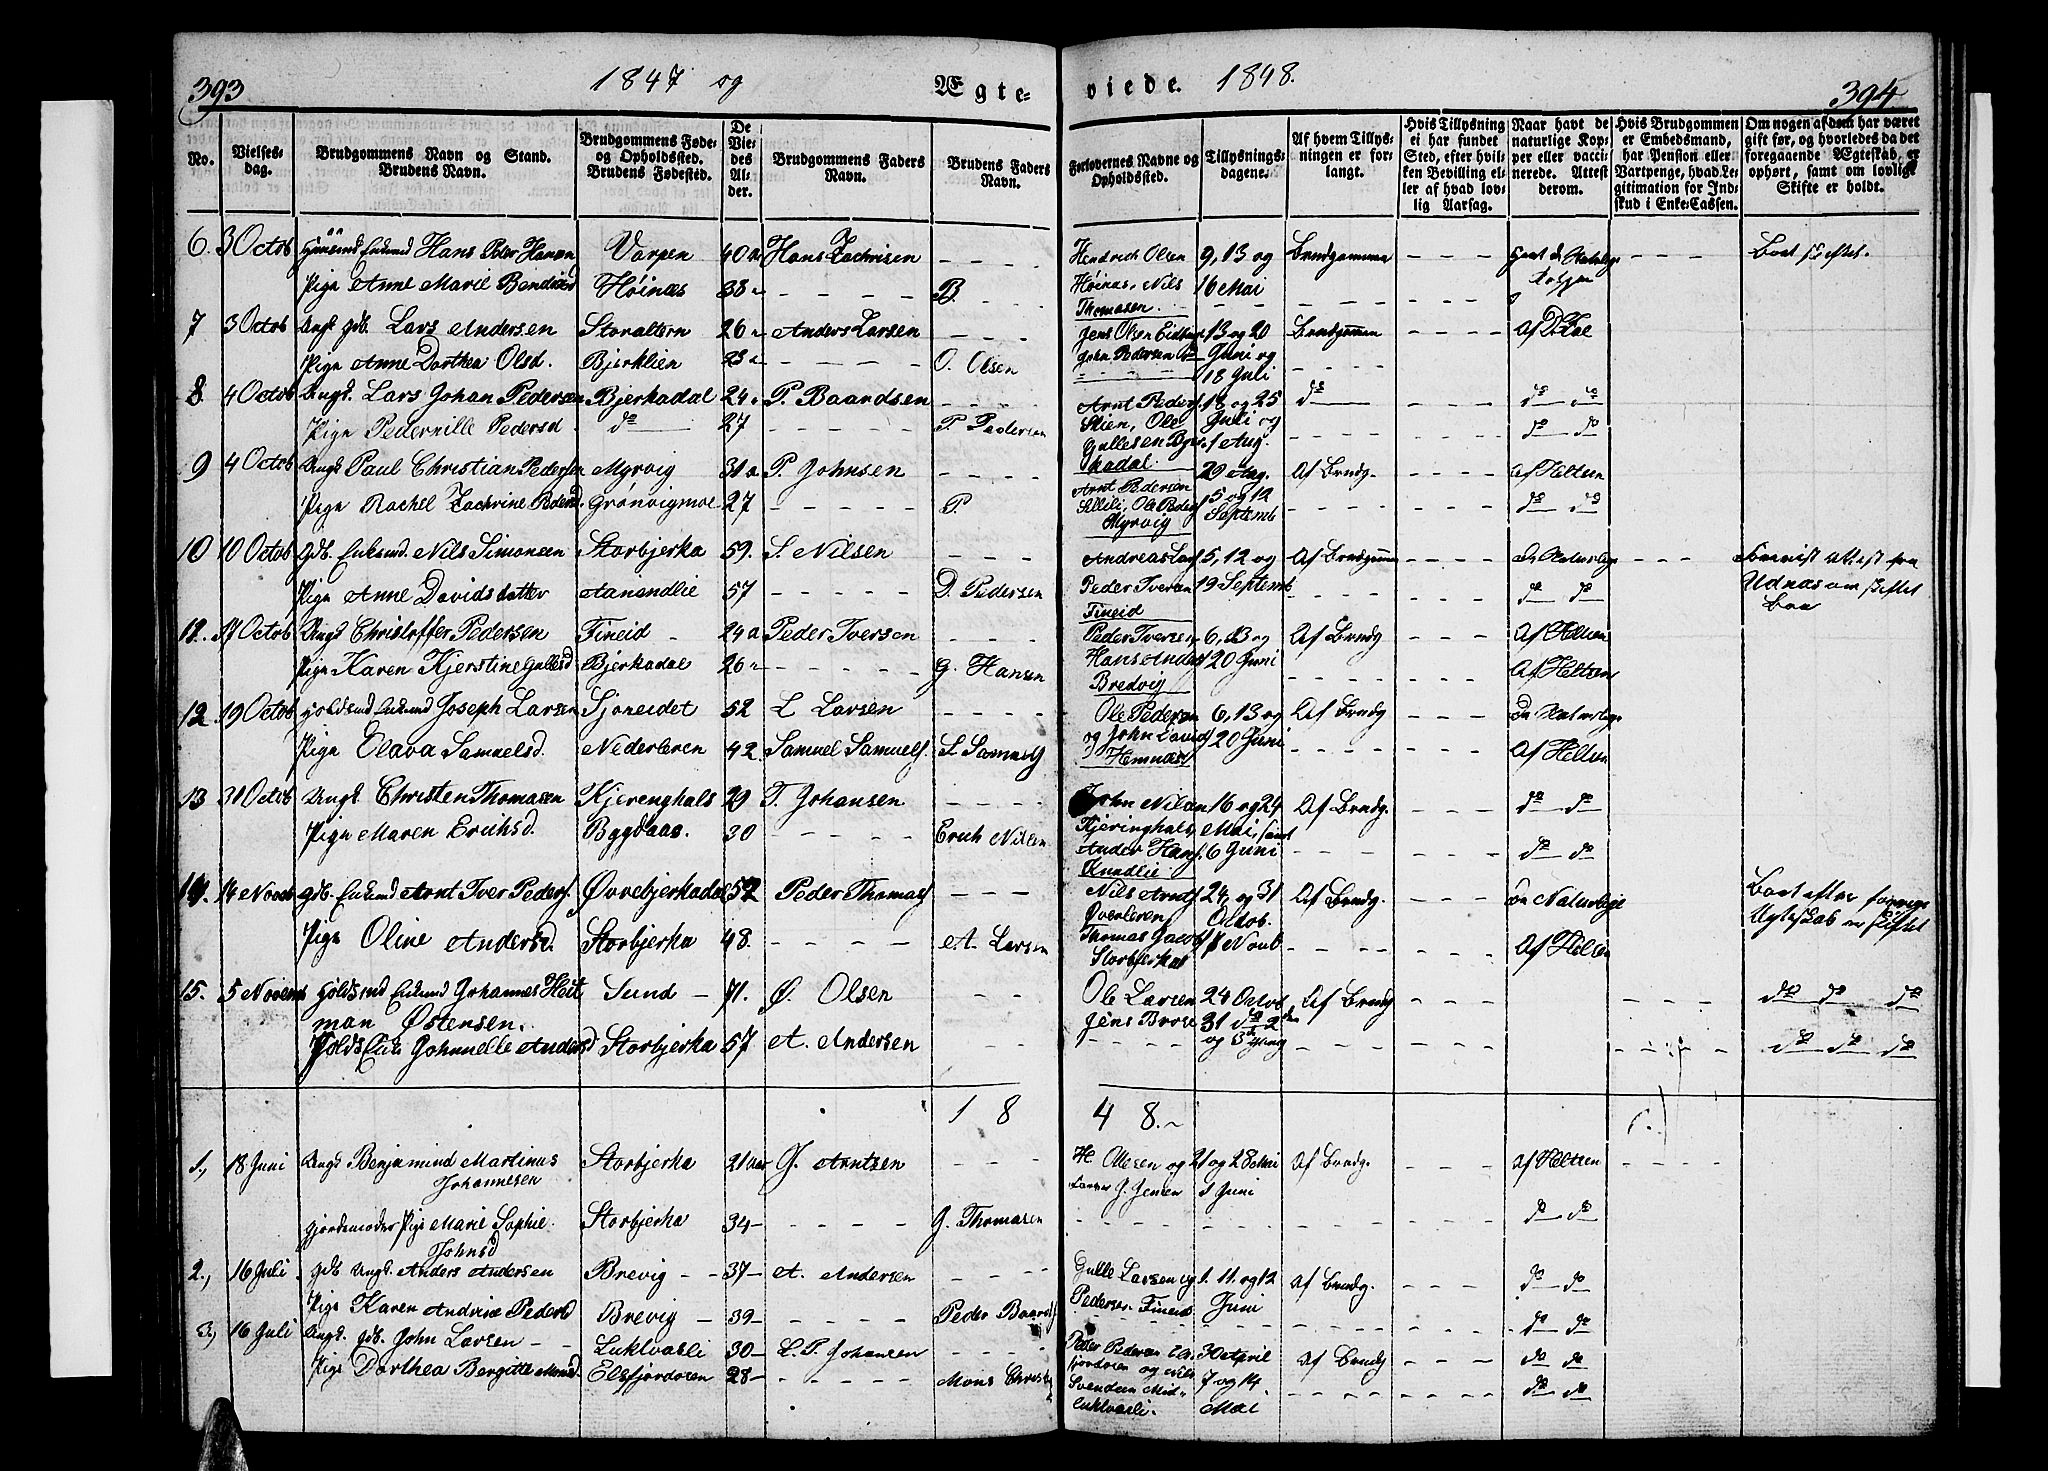 393
1847 og
Ægte=
viede. 1848.
394
No.
Vielses-dag.
Brudgommens Navn og Stand.
Brudens Navn.
Brudgommens Føde- og Opholdssted.
Brudens Fødested.
De Viedes Alder.
Brudgommens Faders Navn.
Brudens Faders Navn.
Forlovernes Navne og Opholdssted.
Tillysnings-dagene.
Af hvem Tillysningen er forlangt.
Hvis Tillysning ei har fundet Sted, efter hvilken Bevilling eller af hvad lovlig Aarsag.
Naar havt de naturlige Kopper eller vaccinerede. Attest derom.
Hvis Brudgommen er Embedsmand, har Pension eller Vartpenge, hvad Legitimation for Indskud i Enke-Cassen.
Om nogen af dem har været gift før, og hvorledes da det foregaaende Ægteskab er ophørt, samt om lovligt Skifte er holdt.
6. 3 Octob Hans Peder Hansen Varpen 40 Hans Zachrisen Hendrich Olsen 9, 13 og Brudgommen
Pige Anne Marie Høinæs 38 B. Høinæs, Nils 16 Mai
Thomasen
7 3 Octob Ungk. Gdb. Lars Andersen Storaltern 26 Anders Larsen Jens Olsen 13 og 20 Brudgommen
Pige Anne Dorthea Olsd. Bjerklien 23 O. Olsen John Pedersen Juni og
18 Juli
8 4 Octob Ungk. Lars Johan Pedersen Bjerkadal 24 P. Baardsen Arnt Peders 18 og 25 do do do
Pige Pedernille Pedersd do 27 P. Pedersen Skien, Ole Juli og do do
Gullesen 1 Aug.
kadal
9 4 Octob Ungk Paul Christian Pedersen Myrvig 31 P. Johnsen 29 Aug. Af Brudg. Af Heltsen
Arnt Pedersen
Pige Rachel Zachrine Grønvigmoe 27 P Ole Peders 5 og 12 do do
Myrvig Septemb
10 10 Octob Gdb. Enkemd. Nils Simonsen Storbjerka 59. S. Nilsen Andreas 5, 12 og Af Brudgommen de Naturlige Attest fra
Pige Anne Davidsdatter 57 D. Pedersen Peder Iversen 19 Septemb do do Udnæs om skiftet
Fineid
11. 17 Octob Ungk Christoffer Pedersen Fineid 24 Peder Iversen Peder Iversen 6, 13 og Af Brudg Af Heltsen
Pige Karen Kjerstine Gullesd Bjerkadal 26 G. Hansen Hans Anders 20 Juni Af Heltsen
Bredvig
12 19 Octob Enkemd Joseph Larsen Sjoneidet 52 L Larsen Ole Pedersen 6, 13 og Af Brudg de Naturlige
Pige Elava Samuelsd. Nederleren 42. Samuel Samuels. S. Samuels og John 20 Juni Af Heltsen
Hemnæs
13 31 Octob Ungk. Christen Thomasen Kjerenghals 29 T. Johansen John Nilsen 16 og 24 Af Brudg. do do
Pige Maren Erichsd. Bygdaas. 30 Erich Nilsen Kjeringhals, Mai, samt
Ander Hans. 6 Juni do do
14. 14 Novb Gdb. Enkemd Arnt Iver Peders. Øvrebjerkadal 52 Peder Thomas Nils Arnts 24, og 31 Af Brudg. de Naturlige
Overleren Oktob.
Pige Oline Andersd. Storbjerka 48. A. Larsen Thomas Jacobs 7 Novb. Af Heltsen
Storbjerka
15. 5 Novemb Enkemd Johannes Heit Sund 71. Ø. Olsen Ole Larsen 24 Octob Af Brudg do do do
man Østensen. Jens Brose 31 do 2den
Enke Johnnelle Andersd Storbjerka 57 A. Andersen og 3de Gang do do do
1 8 4 8.
1., 18 Juni Ungk Benjamind Martinus Storbjerka 21 Aar J. Arntsen H. Olesen og 21 og 28 Mai Af Brudg. Af Heltsen
Johannesen J. Jensen Juni
Gjordemoder Pige Marie Sophie Storbjerka 34 J. Thomasen do do
Johnsd
2., 16 Juli. Gdb Ungk. Anders Andersen Brevig 37 A. Andersen Gulle Larsen og 1. 11. og 12 Af Brudg. do do
Pige Karen Andrine Pedersd Brevig 39 Peder Baards Pedersen Fineid Juni do do
3., 16 Juli Ungk. Gdb. John Larsen Luktvasli 30 L. P. Johansen Peder Pedersen 30 April Af Brudg do do
Pige Dorthea Bergitte Monsd. Elsfjordoren 28 Mons fjordoren og Nils 7 og 14 do do
Svendsen Mid- Mai
Luktvasli.